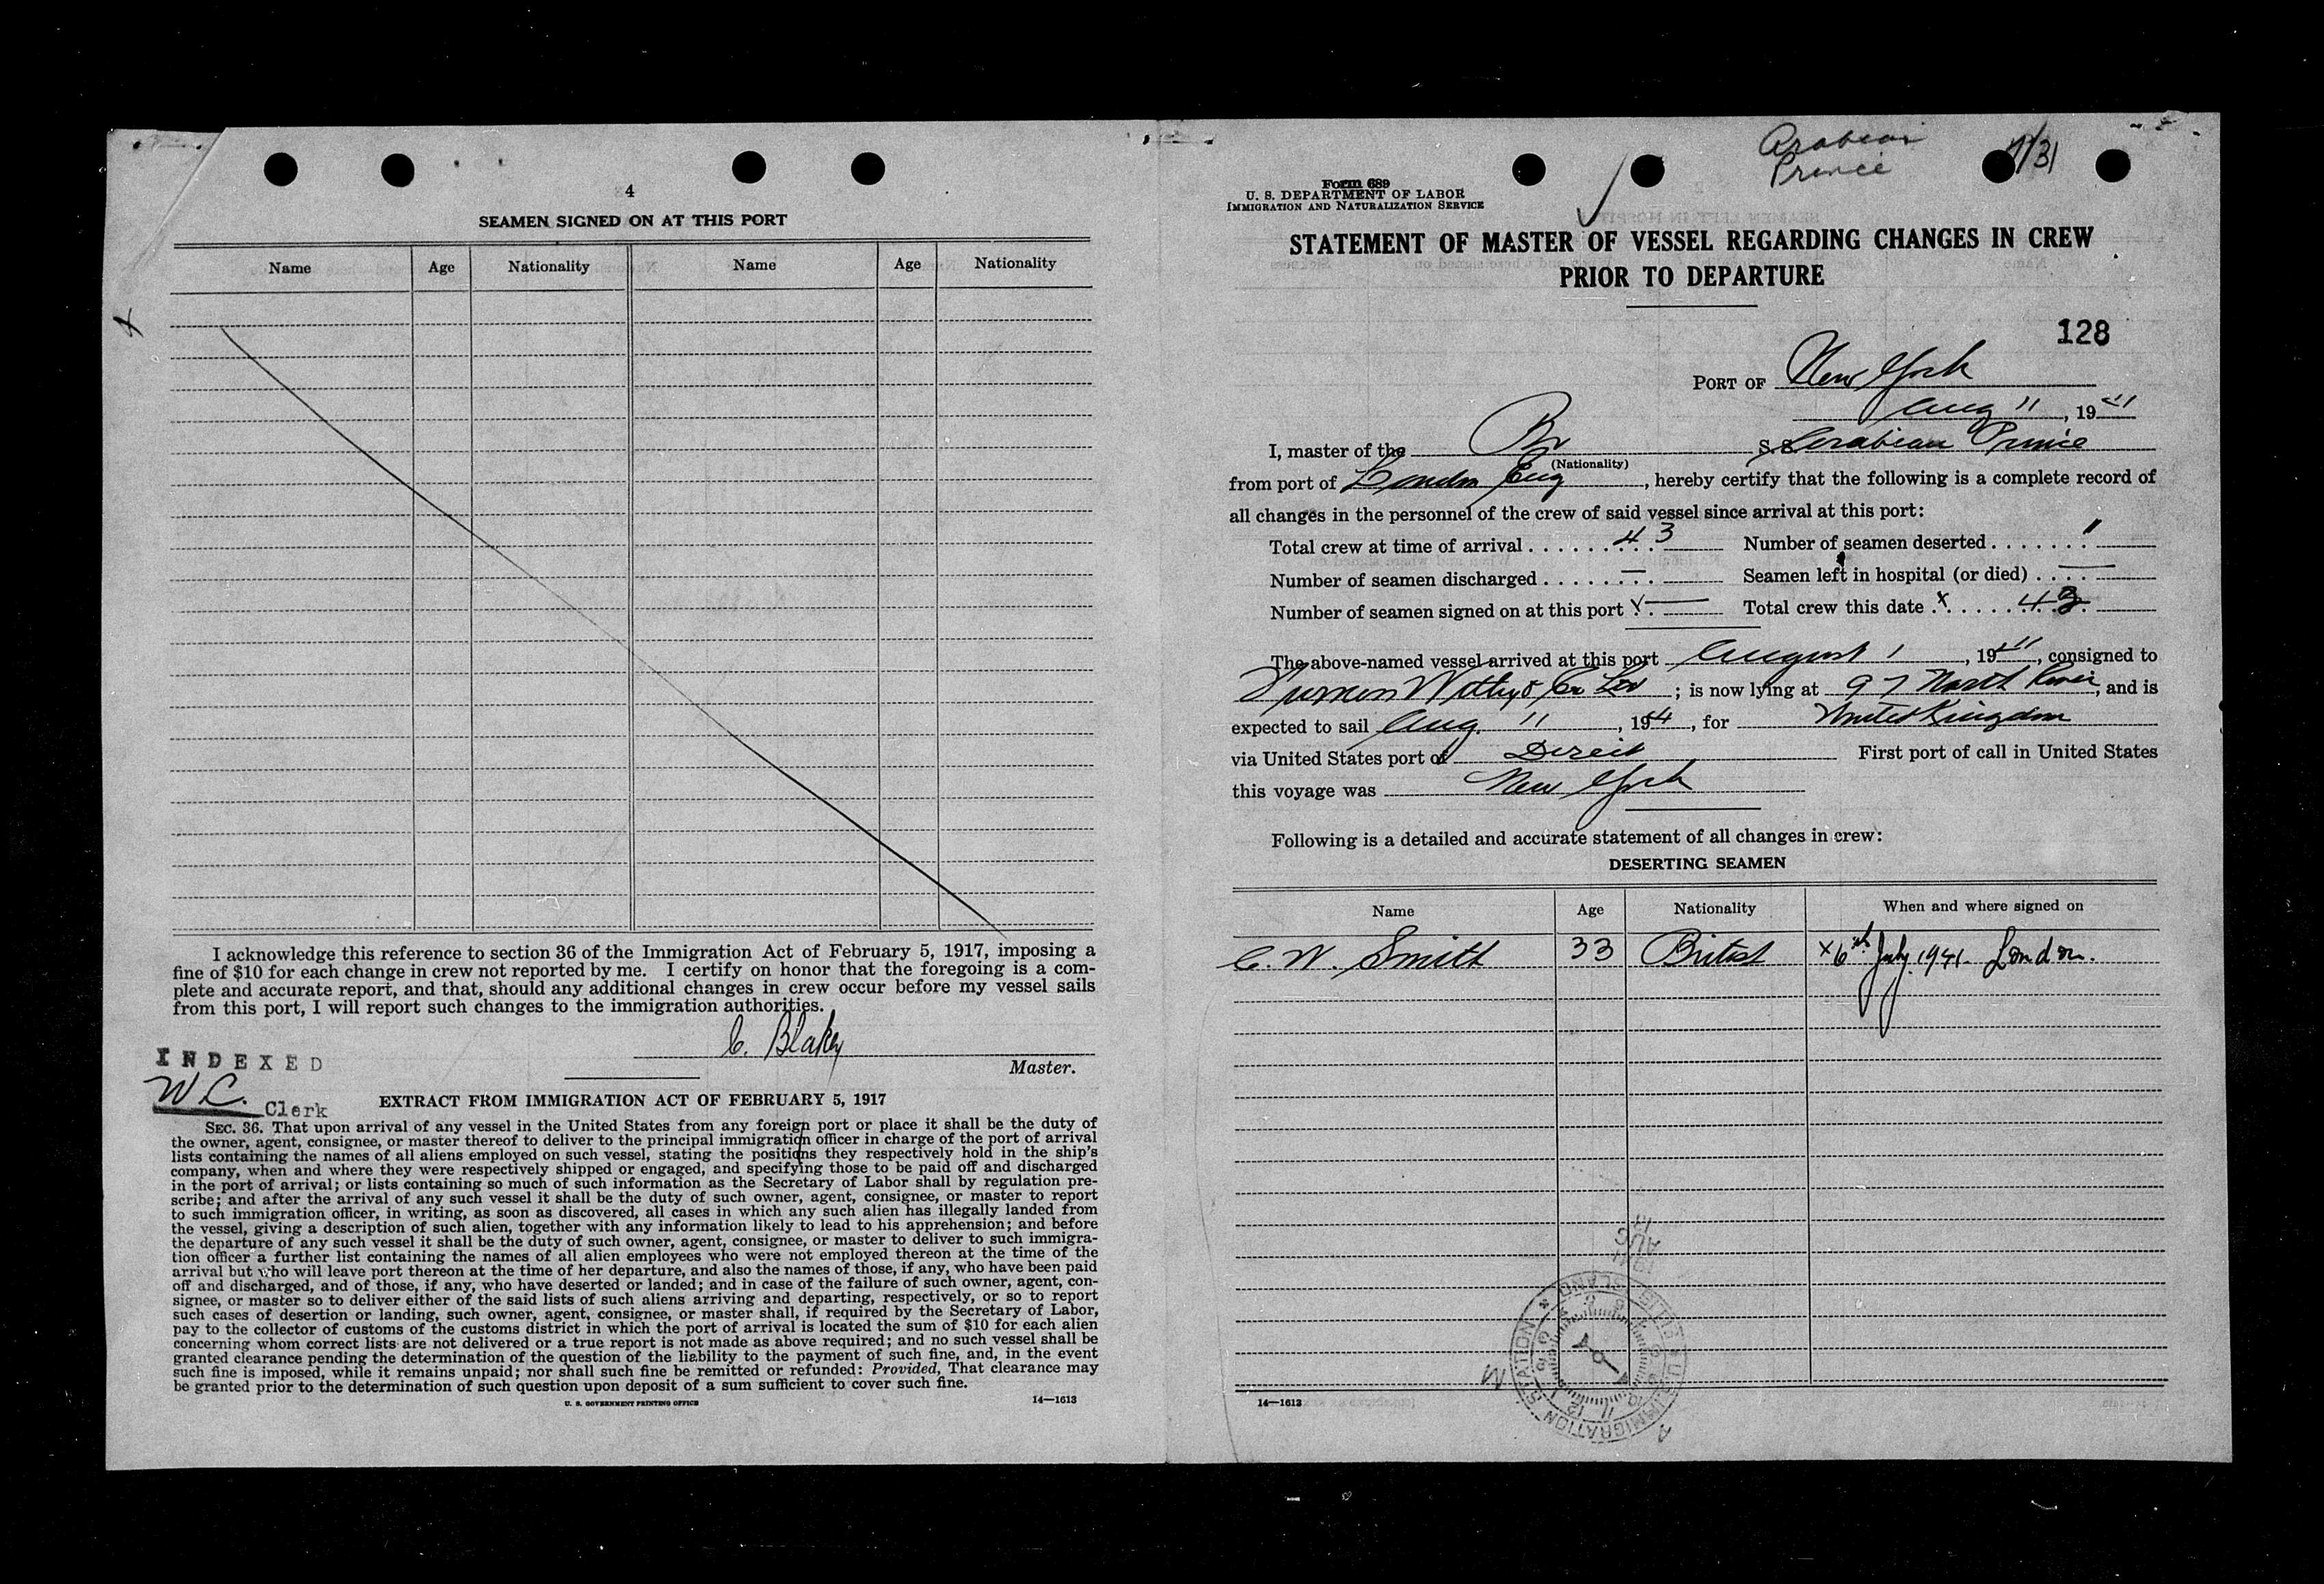 4
SEAMEN SIGNED ON AT THIS PORT
Name Age Nationality Name Age Nationality
I acknowledge this reference to section 36 of the Immigration Act of February 5, 1917, imposing a
fine of $10 for each change in crew not reported by me. I certify on honor that the foregoing is a com-
plete and accurate report, and that, should any additional changes in crew occur before my vessel sails
from this port, I will report such changes to the immigration authorities.
C. Blakey
Master.
INDEXED
W C. Clerk
EXTRACT FROM IMMIGRATION ACT OF FEBRUARY 5, 1917
SEC. 36. That upon arrival of any vessel in the United States from any foreign port or place it shall be the duty of
the owner, agent, consignee, or master thereof to deliver to the principal immigration officer in charge of the port of arrival
lists containing the names of all aliens employed on such vessel, stating the positions they respectively hold in the ship's
company, when and where they were respectively shipped or engaged, and specifying those to be paid off and discharged
in the port of arrival; or lists containing so much of such information as the Secretary of Labor shall by regulation pre-
scribe; and after the arrival of any such vessel it shall be the duty of such owner, agent, consignee, or master to report
to such immigration officer, in writing, as soon as discovered, all cases in which any such alien has illegally landed from
the vessel, giving a description of such alien, together with any information likely to lead to his apprehension; and before
the departure of any such vessel it shall be the duty of such owner, agent, consignee, or master to deliver to such immigra-
tion officer a further list containing the names of all alien employees who were not employed thereon at the time of the
arrival but who will leave port thereon at the time of her departure, and also the names of those, if any, who have been paid
off and discharged, and of those, if any, who have deserted or landed; and in case of the failure of such owner, agent, con-
signee, or master so to deliver either of the said lists of such aliens arriving and departing, respectively, or so to report
such cases of desertion or landing, such owner, agent, consignee, or master shall, if required by the Secretary of Labor,
pay to the collector of customs of the customs district in which the port of arrival is located the sum of $10 for each alien
concerning whom correct lists are not delivered or a true report is not made as above required; and no such vessel shall be
granted clearance pending the determination of the question of the liability to the payment of such fine, and, in the event
such fine is imposed, while it remains unpaid; nor shall such fine be remitted or refunded: Provided, That clearance may
be granted prior to the determination of such question upon deposit of a sum sufficient to cover such fine.
U. S. GOVERNMENT PRINTING OFFICE 14—1613
Arabian
Prince
/31
Form 689
U. S. DEPARTMENT OF LABOR
IMMIGRATION AND NATURALIZATION SERVICE
STATEMENT OF MASTER OF VESSEL REGARDING CHANGES IN CREW
PRIOR TO DEPARTURE
128
PORT OF New York
Aug 11, 1941
I, master of the Br S.S. Arabian Prince
(Nationality)
from port of London Eng, hereby certify that the following is a complete record of
all changes in the personnel of the crew of said vessel since arrival at this port:
Total crew at time of arrival . . . . . . . . . 43 Number of seamen deserted . . . . . . . 1
Number of seamen discharged . . . . . . . . . — Seamen left in hospital (or died) . . . . —
Number of seamen signed on at this port x . . — Total crew this date . x . . . . . . . . 42
The above-named vessel arrived at this port August 1, 1941, consigned to
Furness Withy & Co Ltd; is now lying at 97 North River, and is
expected to sail Aug. 11, 194, for United Kingdom
via United States port of Direct First port of call in United States
this voyage was New York
Following is a detailed and accurate statement of all changes in crew:
DESERTING SEAMEN
Name Age Nationality When and where signed on
C. W. Smith 33 British x 6th July. 1941. London.
1941
AUG
U.S. IMMIGRATION STATION * ELLIS ISLAND *
14—1613